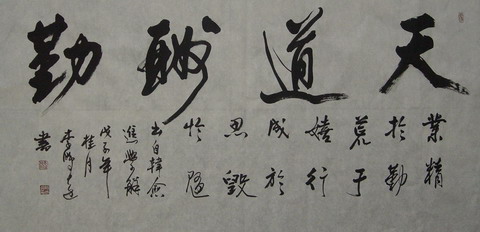 天道酬勤
業精
於勤
荒于
嬉行
成於
思毀
於隨
出自韓愈
進學解
戊子年
桂月
李
書